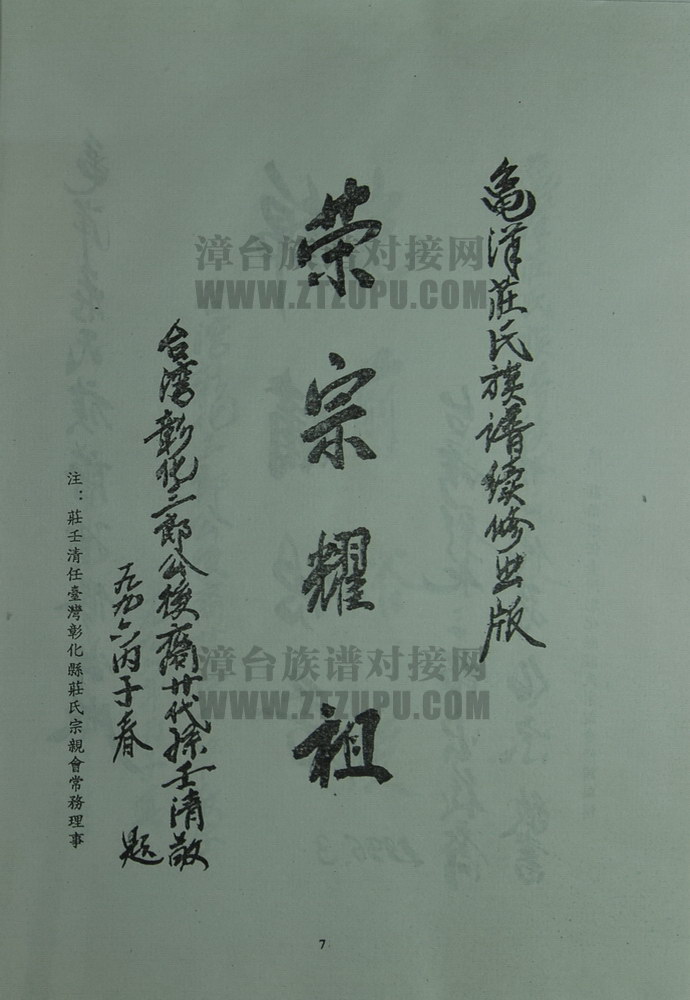 龟洋莊氏族谱续修出版
荣宗耀祖
台湾彰化三郎公後裔廿代孫壬清敬
題
一九九六丙子春
注：莊壬清任臺灣彰化縣莊氏宗親會常務理事
漳台族谱对接网
WWW.ZTZUPU.COM
漳台族谱对接网
WWW.ZTZUPU.COM
7